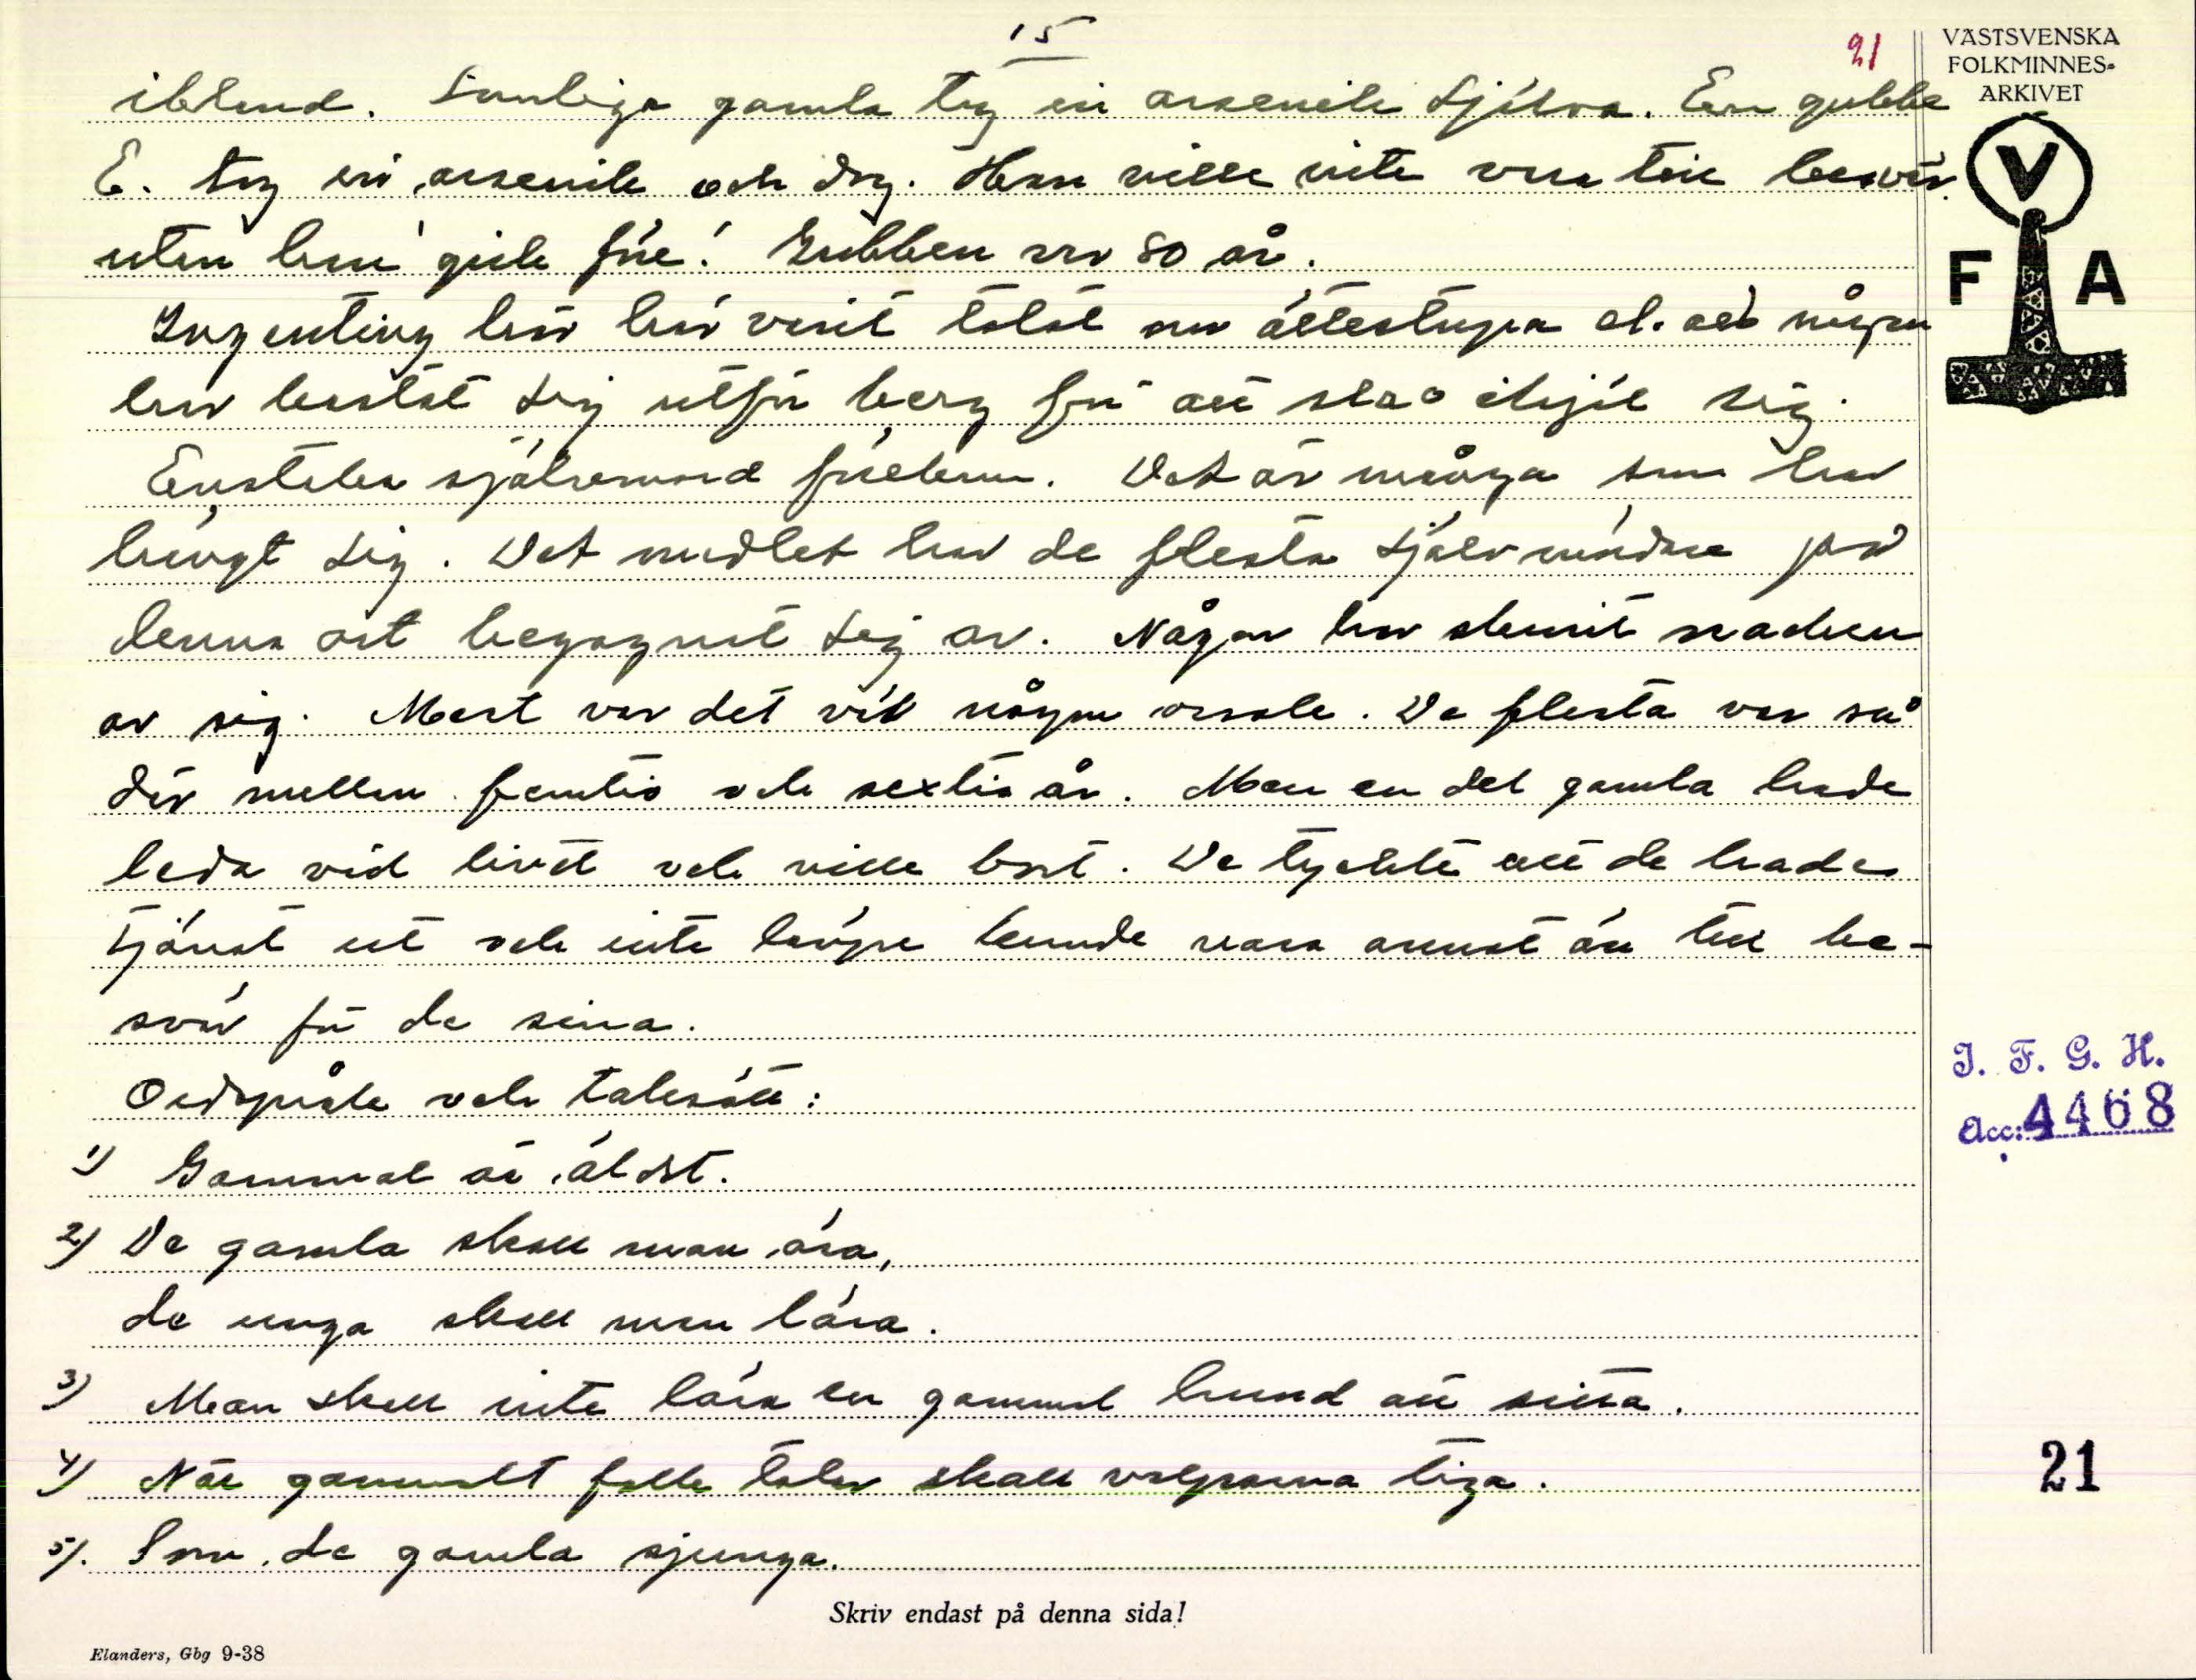 15
21
VÄSTSVENSKA
FOLKMINNES-
ARKIVET
ibland. Somliga gamla tog in arsenik själva. En gubbe
E. tog in arsenik och dog. Han ville inte vara till besvär
utan han gick före! Gubben var 80 år.
V
F A
Ingenting har här varit talat om ättestupa el. att någon
har kastat sig utför berg för att slå ihjäl sig.
Enstaka självmord förekom. Det är många som har
hängt sig. Det medlet har de flesta självmördare på
denna ort begagnat sig av. Någon har skurit nacken
av sig. Mest var det vid någon orsak. De flesta var så
där mellan femtio och sextio år. Men en del gamla hade
leda vid livet och ville bort. De tyckte att de hade
tjänat ut och inte längre kunde vara annat än till be-
svär för de sina.
Ordspråk och talesätt:
1) Gammal är äldst.
2) De gamla skall man ära,
de unga skall man lära.
3) Man skall inte lära en gammal hund att sitta.
4) När gammalt folk talar skall valparna tiga.
5). Som de gamla sjunga.
I. F. G. H.
Acc: 4468
21
Skriv endast på denna sida!
Elanders, Gbg 9-38